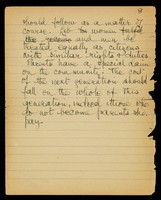 should follow as a matter of
course. for women
and men be
treated equally as citizens
with similar rights & duties
Parents have a special claim
on the community. The cost
of the next generation should
fall on the whole of this
generation, indeed those who
do not become parents should
pay.